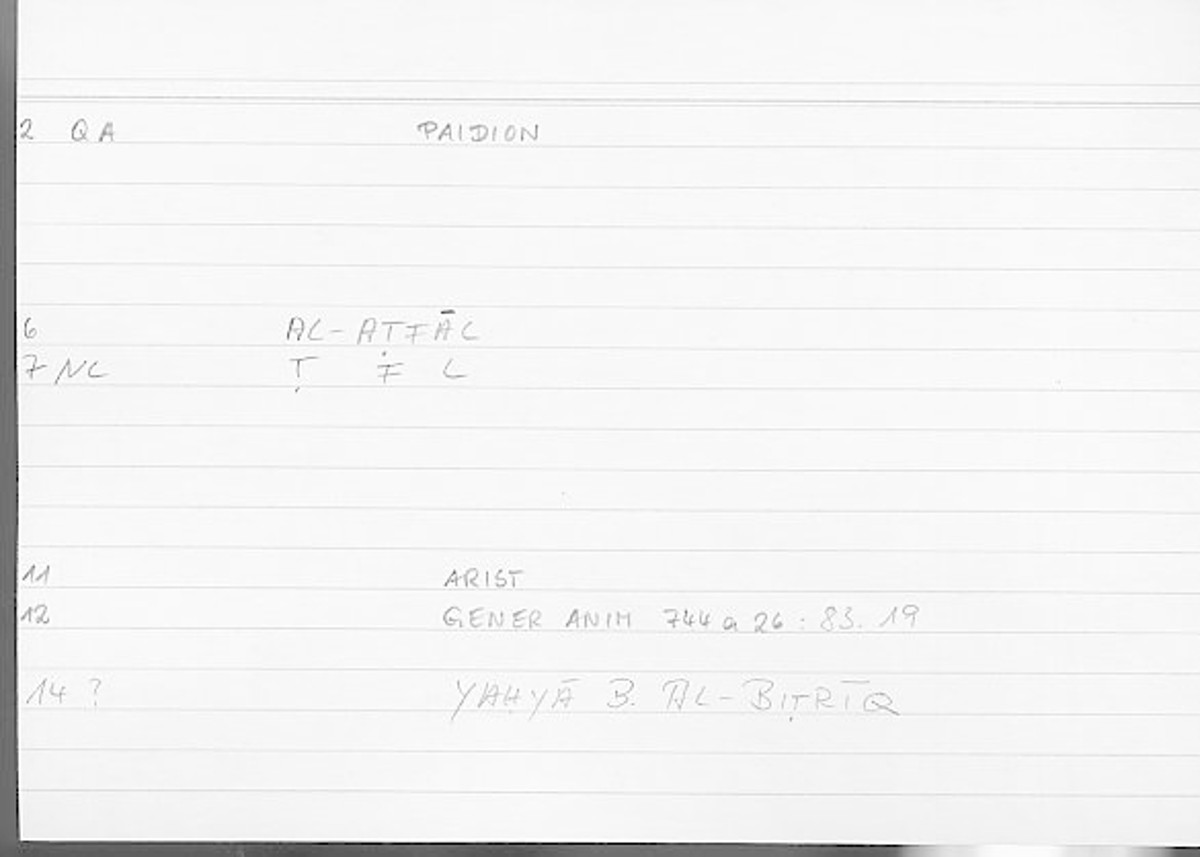 2 QA PAIDION
6 AL-AṬFĀL
7 NL Ṭ F L
11 ARIST
12 GENER ANIM 744 a 26 : 83. 19
14 ? YAḤYĀ B. AL-BIṬRĪQ